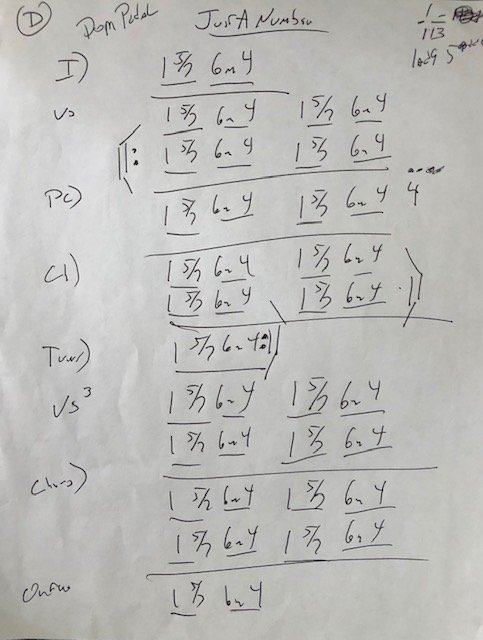 D Dom Pedal Just A Number
1
113
I) 1 5/7 6m 4
Vs 1 5/7 6m 4 1 5/7 6m 4
1 5/7 6m 4 1 5/7 6m 4
PC) 1 5/7 6m 4 1 5/7 6m 4 4
Ch) 1 5/7 6m 4 1 5/7 6m 4
1 5/7 6m 4 1 5/7 6m 4
Turn) 1 5/7 6m 4
Vs 3 1 5/7 6m 4 1 5/7 6m 4
1 5/7 6m 4 1 5/7 6m 4
Chorus) 1 5/7 6m 4 1 5/7 6m 4
1 5/7 6m 4 1 5/7 6m 4
Outro 1 5/7 6m 4